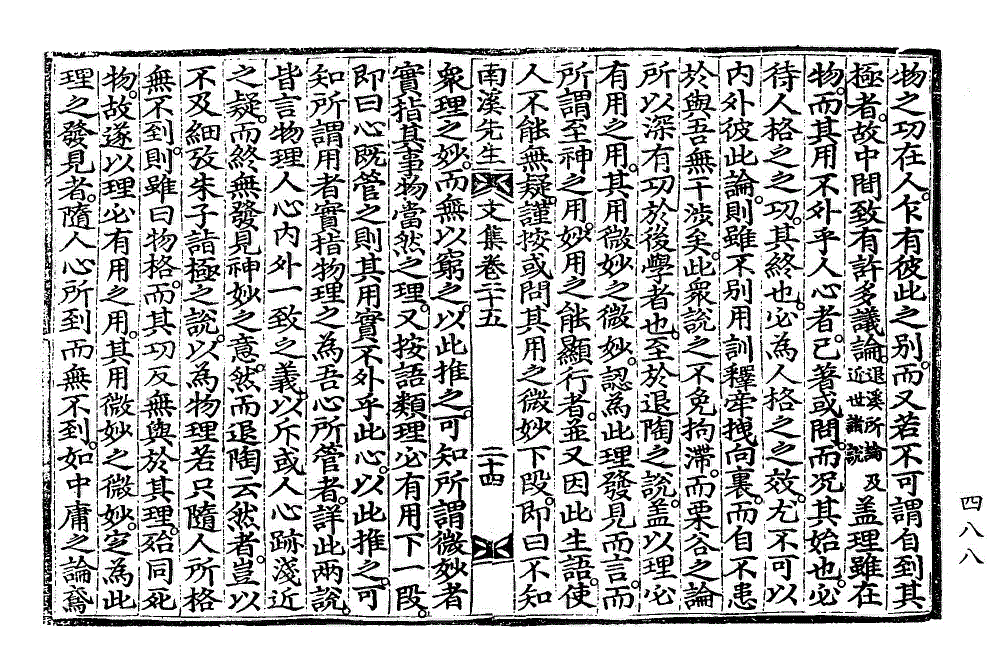 物之功在人。乍有彼此之別。而又若不可謂自到其
極者。故中間致有許多議論。退溪所論及近世諸說盖理雖在
物。而其用不外乎人心者。已著或問。而况其始也。必
待人格之之功。其終也。必爲人格之之效。尤不可以
內外彼此論。則雖不別用訓釋牽拽向裏。而自不患
於與吾無干涉矣。此衆說之不免拘滯。而栗谷之論
所以深有功於後學者也。至於退陶之說。盖以理必
有用之用。其用微妙之微妙。認爲此理發見而言。而
所謂至神之用。妙用之能顯行者。並又因此生語。使
人不能無疑。謹按或問其用之微妙下段。卽曰不知
南溪先生文集卷五十五
二十四
衆理之妙。而無以窮之。以此推之。可知所謂微妙者
實指其事物當然之理。又按語類理必有用下一段。
卽曰心旣管之則其用實不外乎此心。以此推之。可
知所謂用者實指物理之爲吾心所管者。詳此兩說。
皆言物理人心內外一致之義。以斥或人心跡淺近
之疑。而終無發見神妙之意。然而退陶云然者。豈以
不及細攷朱子詣極之說。以爲物理若只隨人所格
無不到。則雖曰物格。而其功反無與於其理。殆同死
物。故遂以理必有用之用。其用微妙之微妙。定爲此
理之發見者。隨人心所到而無不到。如中庸之論鳶
四八八